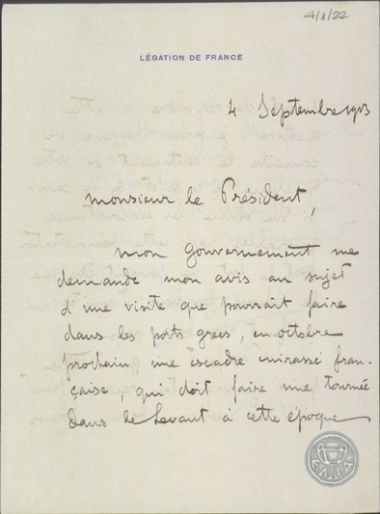 4/1/22
LÉGATION DE FRANCE
4 Septembre 1913
Monsieur le Président,
mon gouvernement me
demande mon avis au sujet
d'une visite que pourrait faire
dans les ports grecs, en octobre
prochain, une escadre cuirassé fran-
çaise, qui doit faire une tournée
dans le Levant à cette époque